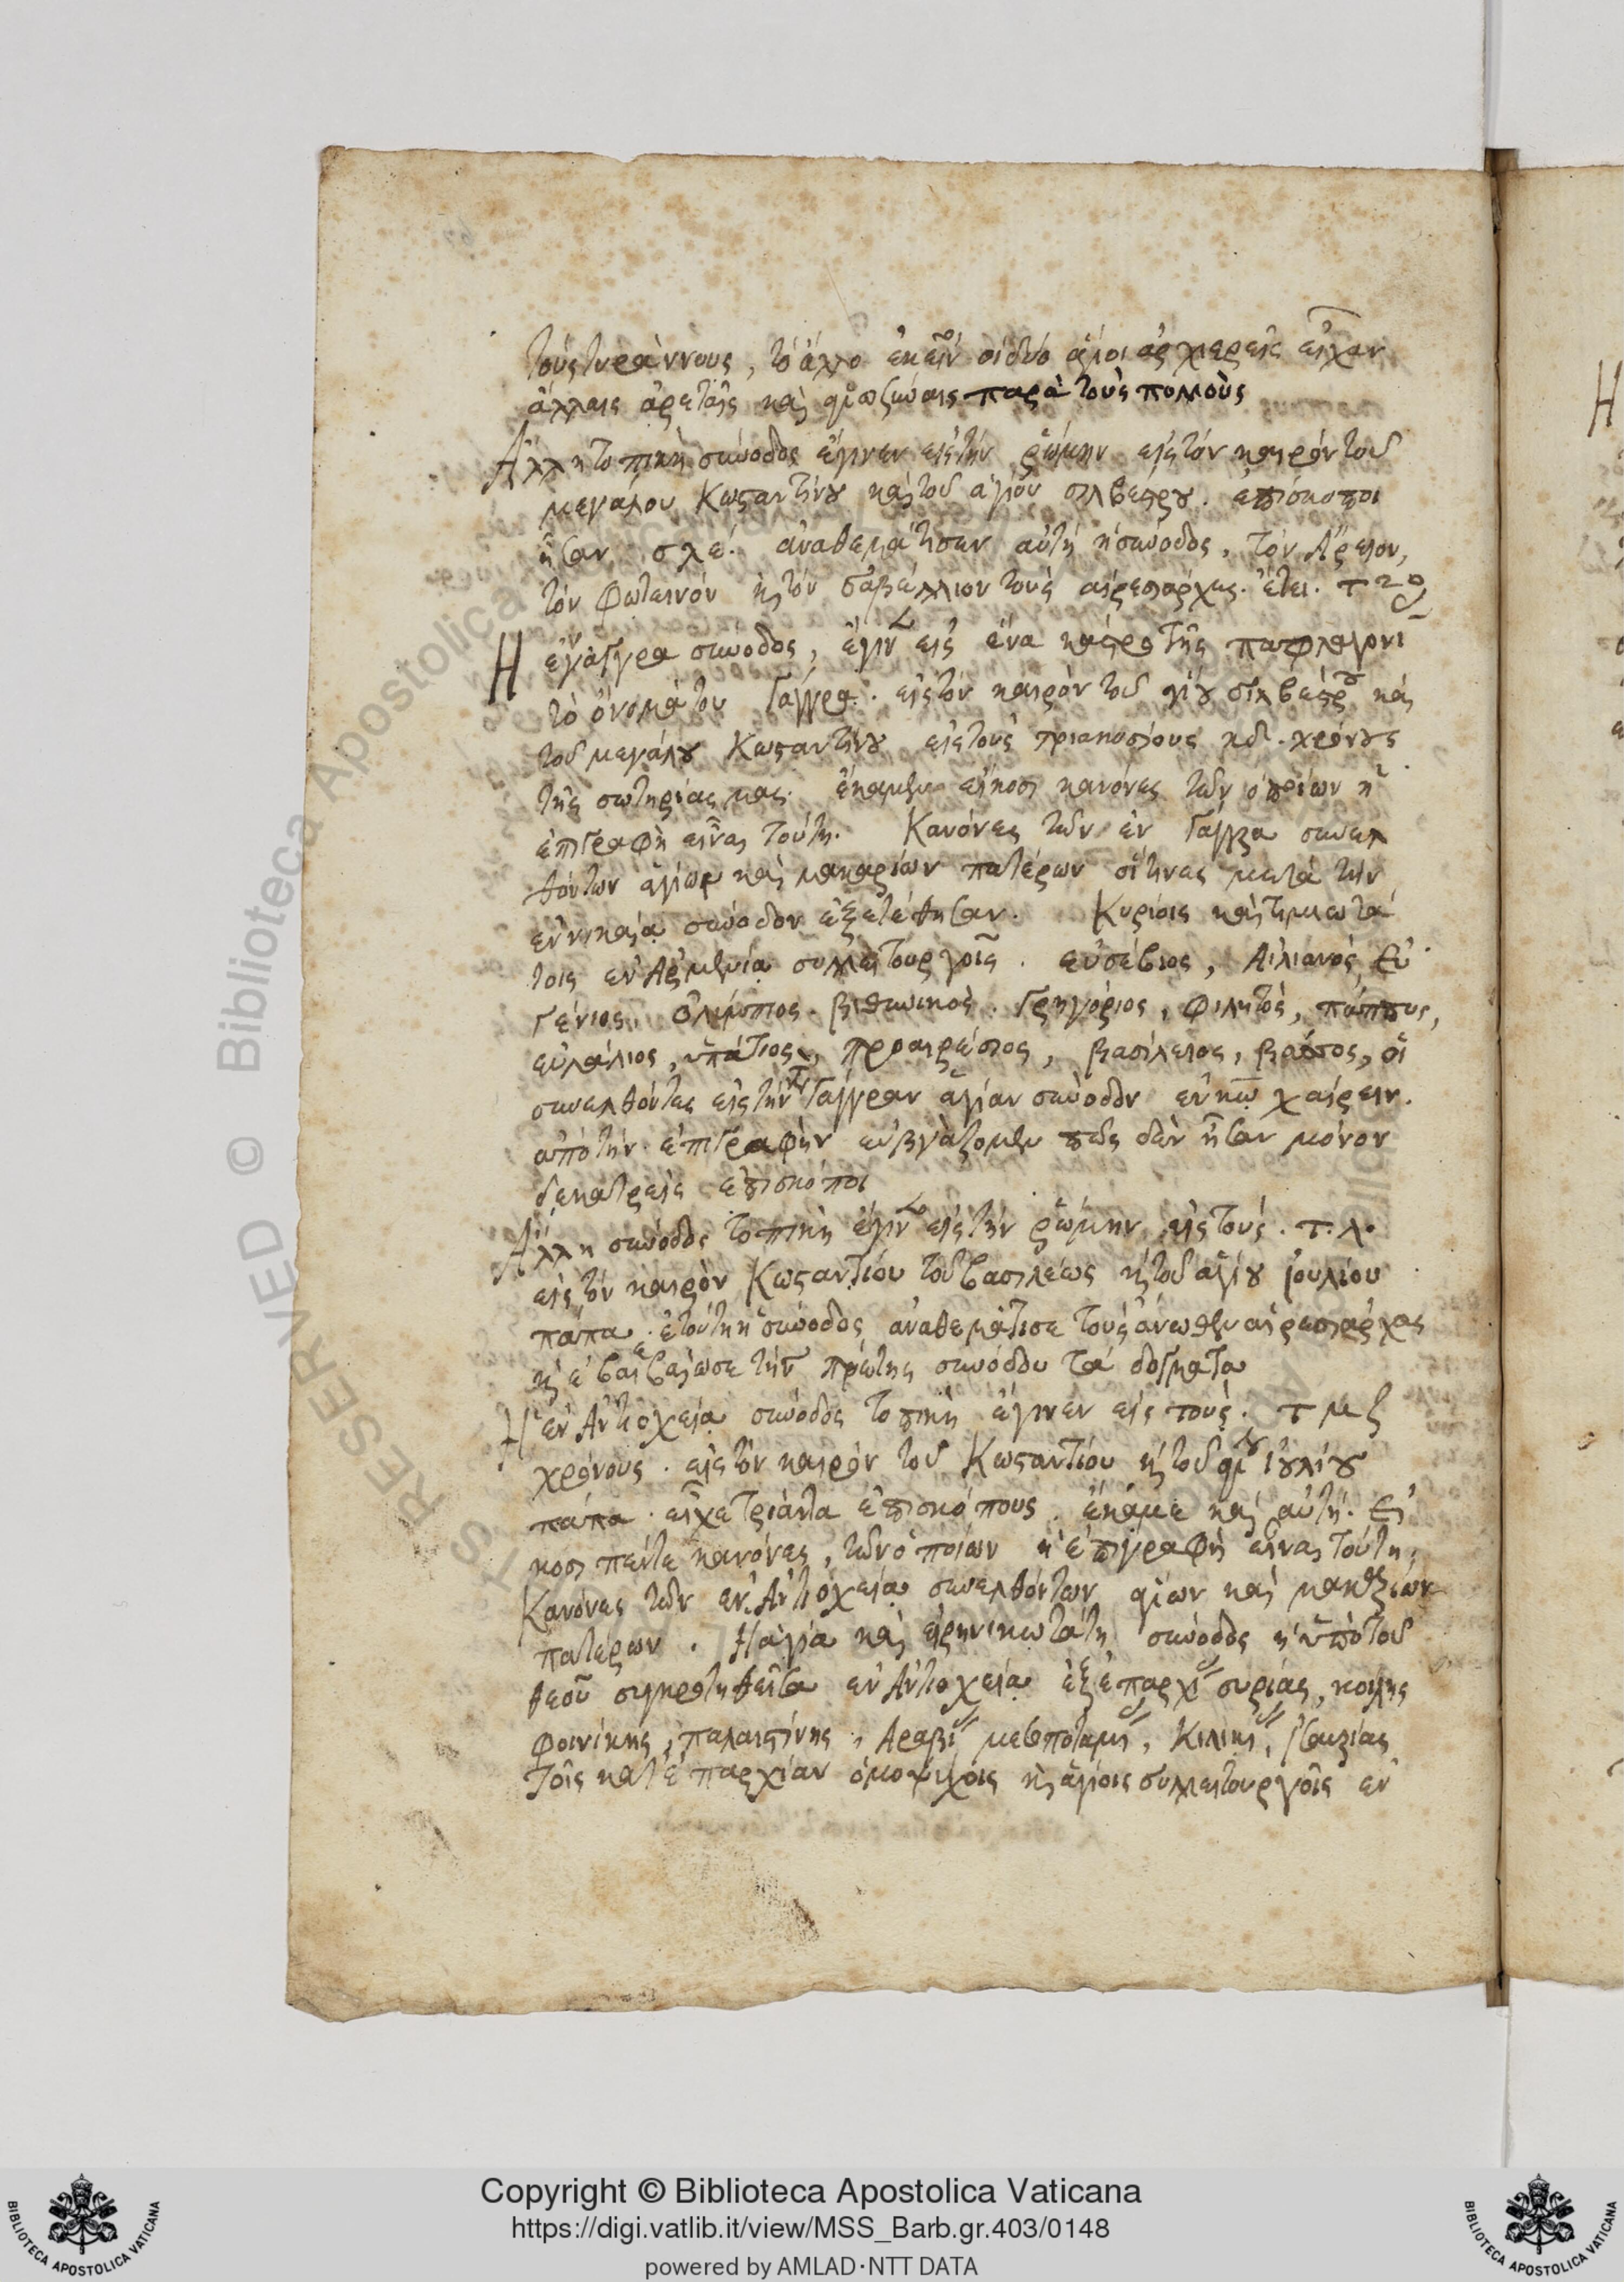 τοὺς τυράννους, τὸ ἄλλο ἐκεῖνοι οἱ δύο ἅγιοι ἀρχιερεῖς εἶχαν
ἄλλαις ἀρεταῖς καὶ παρὰ τοὺς πολλοὺς
Ἄλλη τοπικὴ σύνοδος ἔγινεν εἰς τὴν ῥώμην εἰς τὸν καιρὸν τοῦ
μεγάλου Κωσταντίνου καὶ τοῦ ἁγίου σιλβέστρου. ἐπίσκοποι
ἦσαν σλε. ἀναθεμάτισεν αὐτὴ ἡ σύνοδος, τὸν Ἄρειον,
τὸν Φωτεινὸν καὶ τὸν σαβέλλιον τοὺς αἱρεσιάρχας. ἔτει. τ
Η ἐν γάγγρα σύνοδος, ἔγινεν εἰς ἕνα κάστρο τῆς παφλαγονι
τὸ ὄνομά του Γάγγρα. εἰς τὸν καιρὸν τοῦ ἁγίου σιλβέστρου καὶ
τοῦ μεγάλου Κωσταντίνου εἰς τοὺς τριακοσίους κδ. χρόνους
τῆς σωτηρίας μας. ἔκαμεν εἴκοσι κανόνας τῶν ὁποίων ἡ
ἐπιγραφὴ εἶναι τούτη. Κανόνες τῶν ἐν Γάγγρα συνελ
θόντων ἁγίων καὶ μακαρίων πατέρων οἵτινες μετὰ τὴν
ἐν νικαίᾳ σύνοδον ἐξετέθησαν. Κυρίοις καὶ τιμιωτά
τοις ἐν Ἀρμενίᾳ συλλειτουργοῖς. εὐσέβιος, Αἰλιανός, Εὐ
γένιος, ὀλύμπιος. βιθυνικὸς. Γρηγόριος, Φιλητὸς, πάππος,
εὐλάλιος, ὑπάτιος, προαιρέσιος, βασίλειος, βάσσος, οἱ
συνελθόντες εἰς τὴν Γάγγραν ἁγίαν σύνοδον ἐν κῳ χαίρειν.
ἀπὸ τὴν ἐπιγραφὴν εὐβγάζομεν πῶς δὲν ἦσαν μόνον
δεκατρεῖς ἐπίσκοποι
Ἄλλη σύνοδος τοπικὴ ἔγινεν εἰς τὴν ῥώμην εἰς τοὺς. τ. λ.
εἰς τὸν καιρὸν Κωσταντίου τοῦ βασιλέως καὶ τοῦ ἁγίου ἰουλίου
πάπα. ἐτούτη ἡ σύνοδος ἀναθεμάτισε τοὺς ἄνωθεν αἱρεσιάρχας
καὶ ἐβεβαίωσε τῆς πρώτης συνόδου τὰ δόγματα
Ἡ ἐν Ἀντιοχείᾳ σύνοδος τοπικὴ ἔγινεν εἰς τοὺς. τμζ
χρόνους. εἰς τὸν καιρὸν τοῦ Κωσταντίου καὶ τοῦ ἁγίου ἰουλίου
πάπα. εἶχε τριάντα ἐπισκόπους. ἔκαμε καὶ αὐτὴ. Εἰ
κοσι πέντε κανόνας, τῶν ὁποίων ἡ ἐπιγραφὴ εἶναι τούτη,
Κανόνες τῶν ἐν Ἀντιοχείᾳ συνελθόντων ἁγίων καὶ μακαρίων
πατέρων. Ἡ ἁγία καὶ εἰρηνικωτάτη σύνοδος ἡ ὑπὸ τοῦ
θεοῦ συγκροτηθεῖσα ἐν Ἀντιοχείᾳ ἐξ ἐπαρχίας συρίας, κοίλης
Φοινίκης, παλαιστίνης, Ἀραβίας μεσοποταμίας, Κιλικίας, ἰσαυρίας
τοῖς κατ᾽ ἐπαρχίαν ὁμοψύχοις καὶ ἁγίοις συλλειτουργοῖς ἐν
Copyright © Biblioteca Apostolica Vaticana
https://digi.vatlib.it/view/MSS_Barb.gr.403/0148
powered by AMLAD·NTT DATA